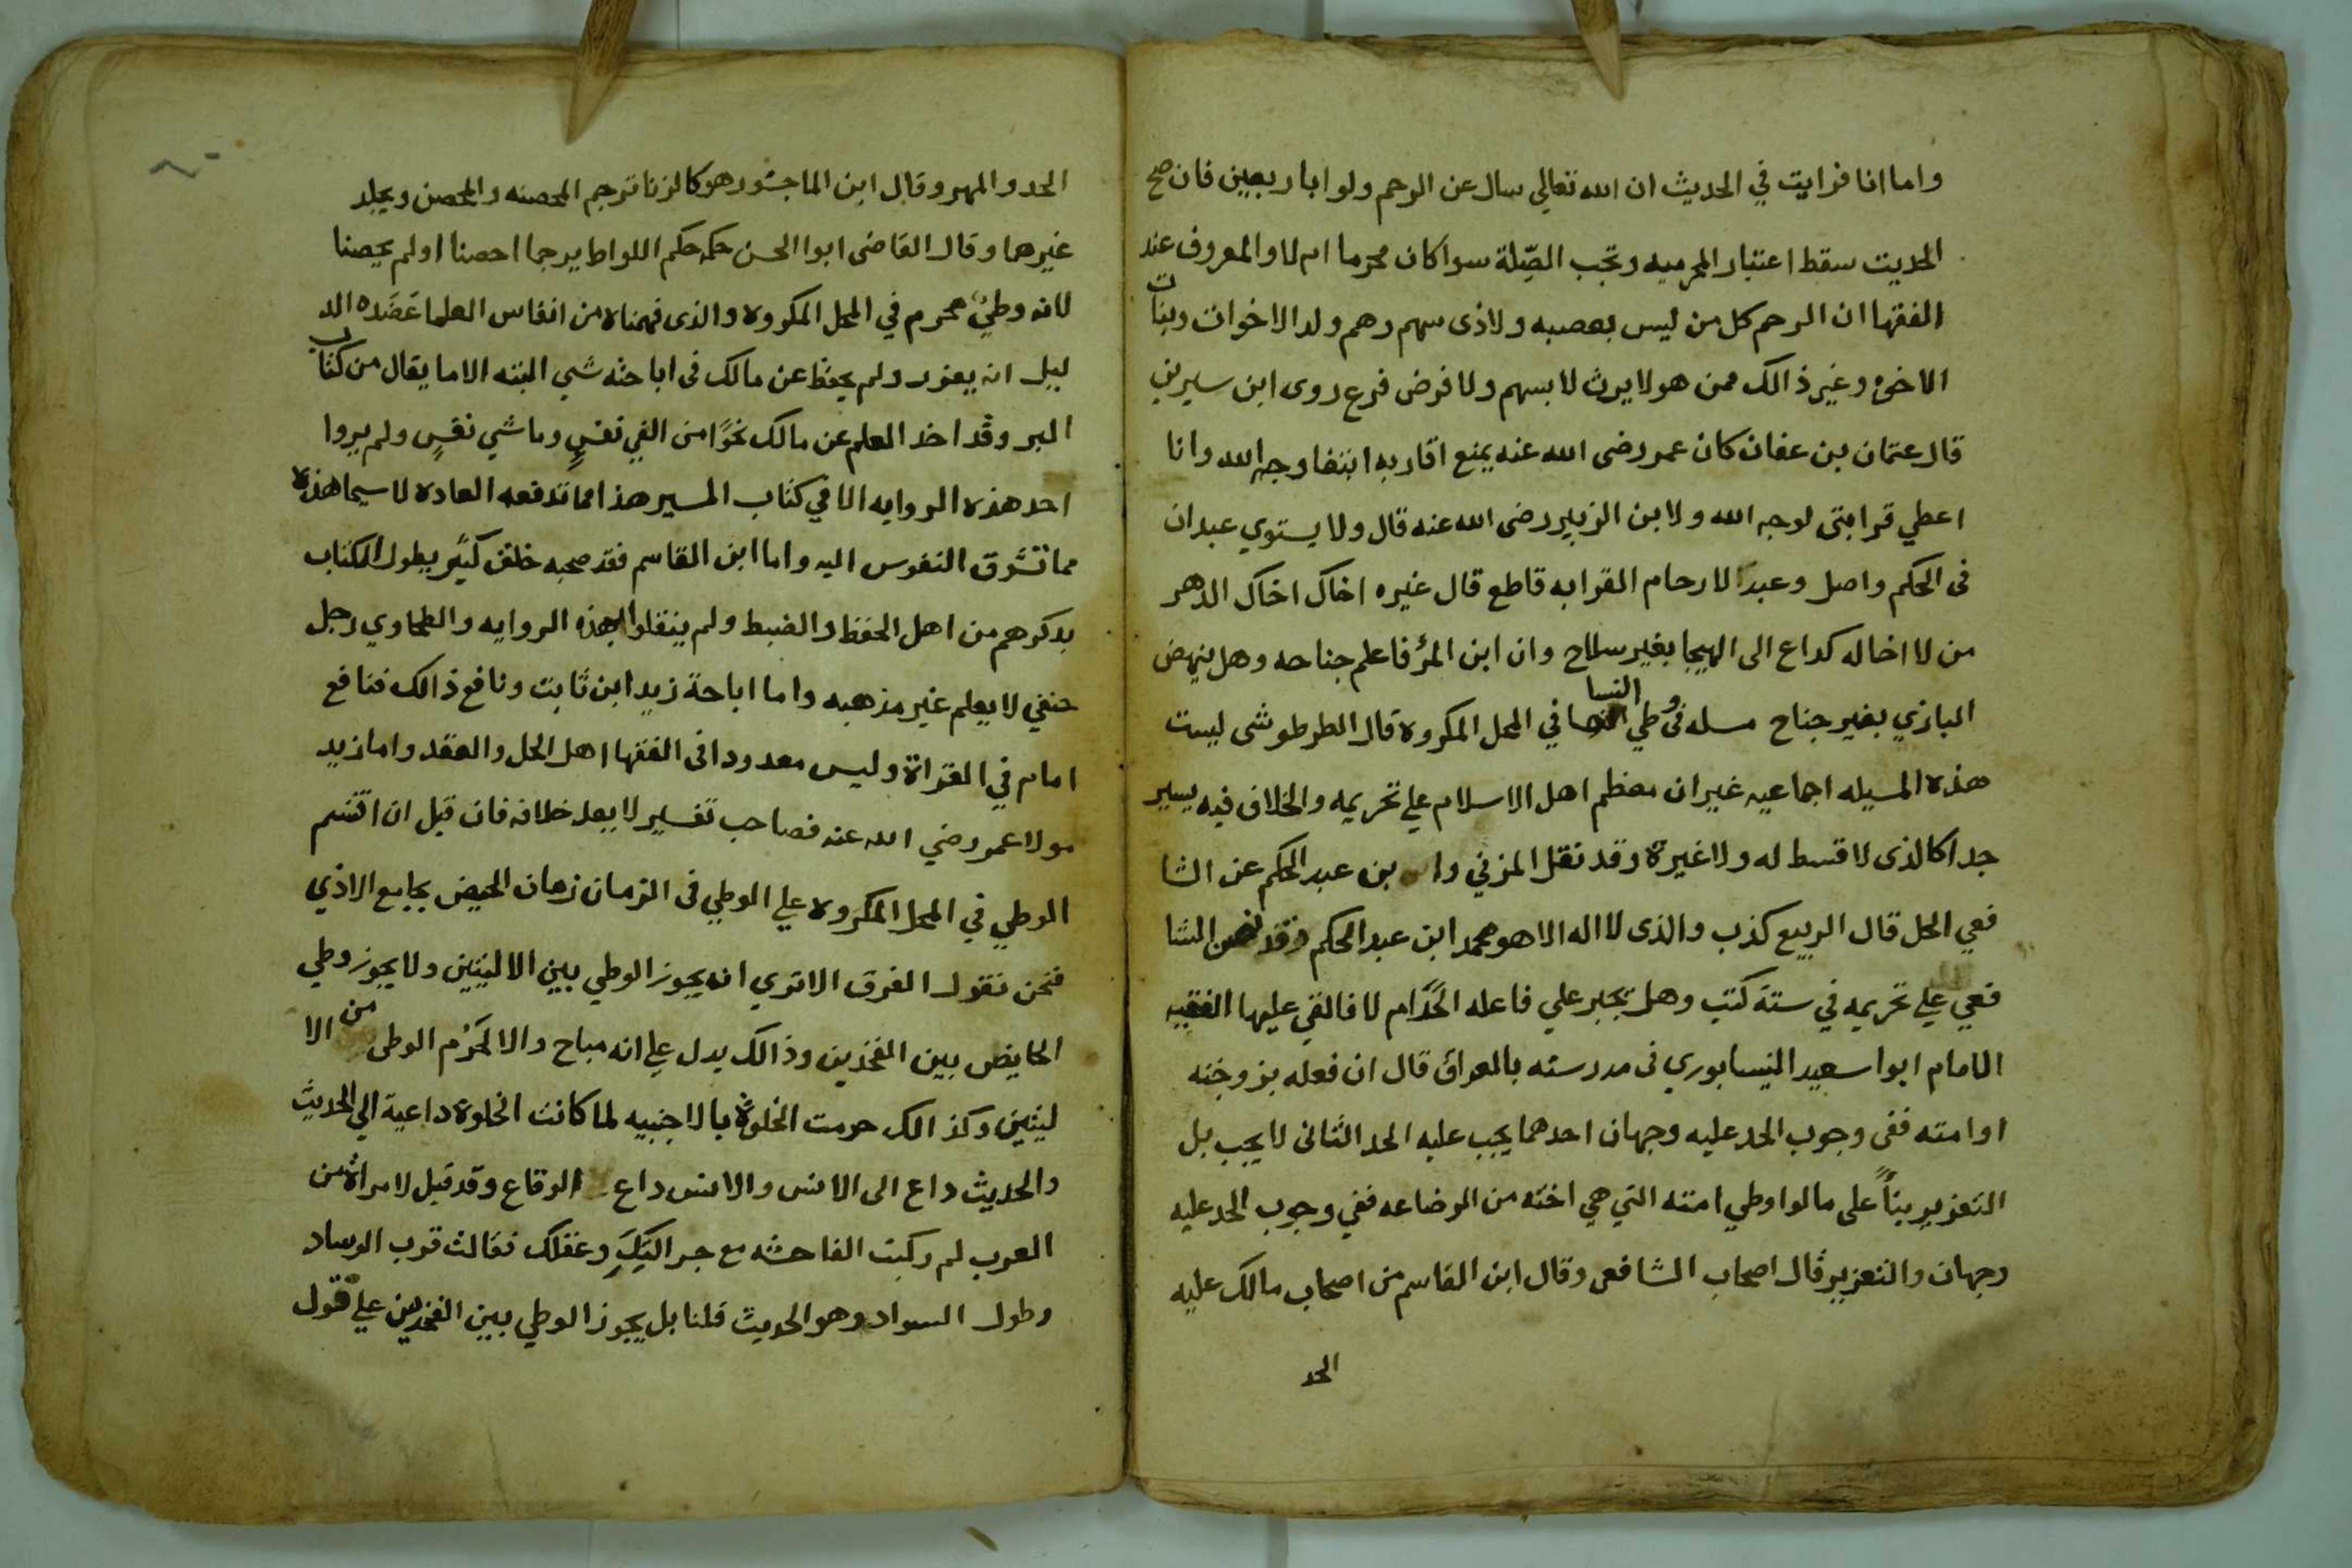 واما انا فرايت في الحديث ان الله تعالي سال عن الرحم ولو باربعين فان صح
الحديث سقط اعتبار المحرميه وتجب الصِّلة سوا كان محرما ام لا والمعروف عند
الفقها ان الرحم كل من ليس بعصبه ولا ذى سهم وهم ولد الاخوات وبنات
الاخوة وغير ذالك ممن هو لا يرث لا بسهم ولا فرض فرع روى ابن سيرين
قال عثمان بن عفان كان عمر رضى الله عنه يمنع اقاربه ابتغا وجه الله وانا
اعطي قرابتى لوجه الله ولابن الزبير رضى الله عنه قال ولا يستوي عبدان
فى الحكم واصل وعبد الارحام القرابه قاطع قال غيره اخاك اخاك الدهر
من لا اخا له كداع الى الهيجا بغير سلاح وان ابن المرٔ فاعلم جناحه وهل ينهض
البازي بغير جناح مسله فى وطي النسا في المحل المكروه قال الطرطوشى ليست
هذه المسيله اجماعيه غير ان معظم اهل الاسلام علي تحريمه والخلاف فيه يسير
جدا كالذى لا قسط له ولا غيرة وقد نقل المزني وا بن عبد الحكم عن الشا
فعي الحل قال الربيع كذب والذى لا اله الا هو محمد ابن عبد الحكم وقد نص الشا
فعي علي تحريمه في ستة كتب وهل تجبر علي فاعله الحدام لا فالقي عليها الفقيه
الامام ابوا سعيد النيسابوري فى مدرسته بالعراق قال ان فعله بزوجته
او امته ففى وجوب الحد عليه وجهان احدهما يجب عليه الحد الثانى لا يجب بل
التعزير بنأً على ما لوا وطي امته التي هي اخته من الرضاعه ففي وجوب الحد عليه
وجهان والتعزير قال اصحاب الشافعى وقال ابن القاسم من اصحاب مالك عليه
الحد
الحد والمهر وقال ابن الماجشور هو كالزنا ترجم المحصنه والمحصن ويجلد
غيرهما وقال القاضى ابوا الحسن حكمه حكم اللواط يرجما احصنا او لم يحصنا
لانه وطئ محرم في المحل المكروه والذى فهمناه من انفاس العلما عَضَده الد
ليل انه يعزر ولم يحفظ عن مالك فى اباحته شي البته الا ما يقال من كتاب
السر وقد اخذ العلم عن مالك نحوًا من الفي نفسٍ وماشي نفسٍ ولم يروا
احد هذه الروايه الا في كتاب السير هذا مما تدفعه العاده لا سيما هذه
مما تشوق النفوس اليه واما ابن القاسم فقد صحبه خلق كثير يطول الكتاب
بدكرهم من اهل الحفظ والضبط ولم ينقلوا هذه الروايه والطحاوي رجل
حنفي لا يعلم غير مذهبه واما اباحة زيد ابن ثابت ونافع ذالك فنافع
امام في القراة وليس معدودا فى الفقها اهل الحل والعقد واما زيد
مولا عمر رضي الله عنه فصاحب تفسير لا يعد خلافه فان قيل ان اقتسم
الوطي في المحل المكروه علي الوطي فى الزمان زمان الحيض بجامع الاذي
فنحن نقول الفرق الا تري انه يجوز الوطي بين الاليتين ولا يجوز وطي
الحايض بين الفخذين وذالك يدل علي انه مباح والا لحَرُم الوطى من الا
ليتين وكذالك حرمت الخلوة بالاجنبيه لما كانت الخلوة داعية الي الحديث
والحديث داع الى الانس والانس داع الوقاع وقد قيل لامراة من
العرب لم ركبت الفاحشه مع جر اليَكِ وعقلك فقالت قرب الوساد
وطول السواد وهو الحديث قلنا بل يجوز الوطي بين الفخذين علي قول